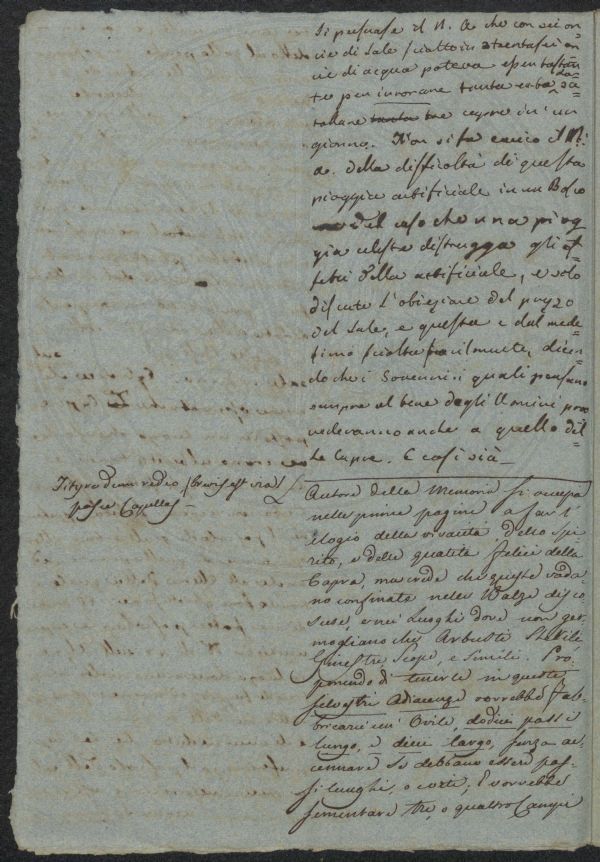 Si persuase il N. A che con sei on-
cie di Sale sciolto in trentasei on-
cie di acqua poteva esser bastan-
te per irrorare tanta erba da sa-
tollare tre capre in un
giorno. Non si fa carico il N.
A. della difficoltà di questa
pioggia artificiale in un Bosco
del caso che una piog
gia celeste distrugga gli ef-
fetti della artificiale, e solo
discute l'obiezione del prezzo
del Sale, e questa è dal mede-
simo sciolta, dicen-
do che i Sovrani i quali pensano
sempre al bene degli Uomini prov
vederanno anche a quello del-
le Capre. E così sia_
Tityre dum redeo (brevis est via)
pasce Capellas_
Autore della Memoria si occupa
nelle prime pagine a far l'
elogio della vivacità dello Spi-
rito, e delle qualità felici della
Capra, ma crede che queste vada-
no confinate nelle Balze disco-
scese, e nei Luoghi dove non ger-
mogliano che Arbusti Sterili
Ginestre, Scope, e Simili. Pro-
ponendo di tenerle in queste
selvestri Adiacenze vorrebbe fab-
bricarci un' Ovile, dodici passi
lungo, e dieci largo, senza ac-
cennare se debbano essere pas-
si lunghi, o corti; E vorrebbe
sementare tre, o quattro Campi